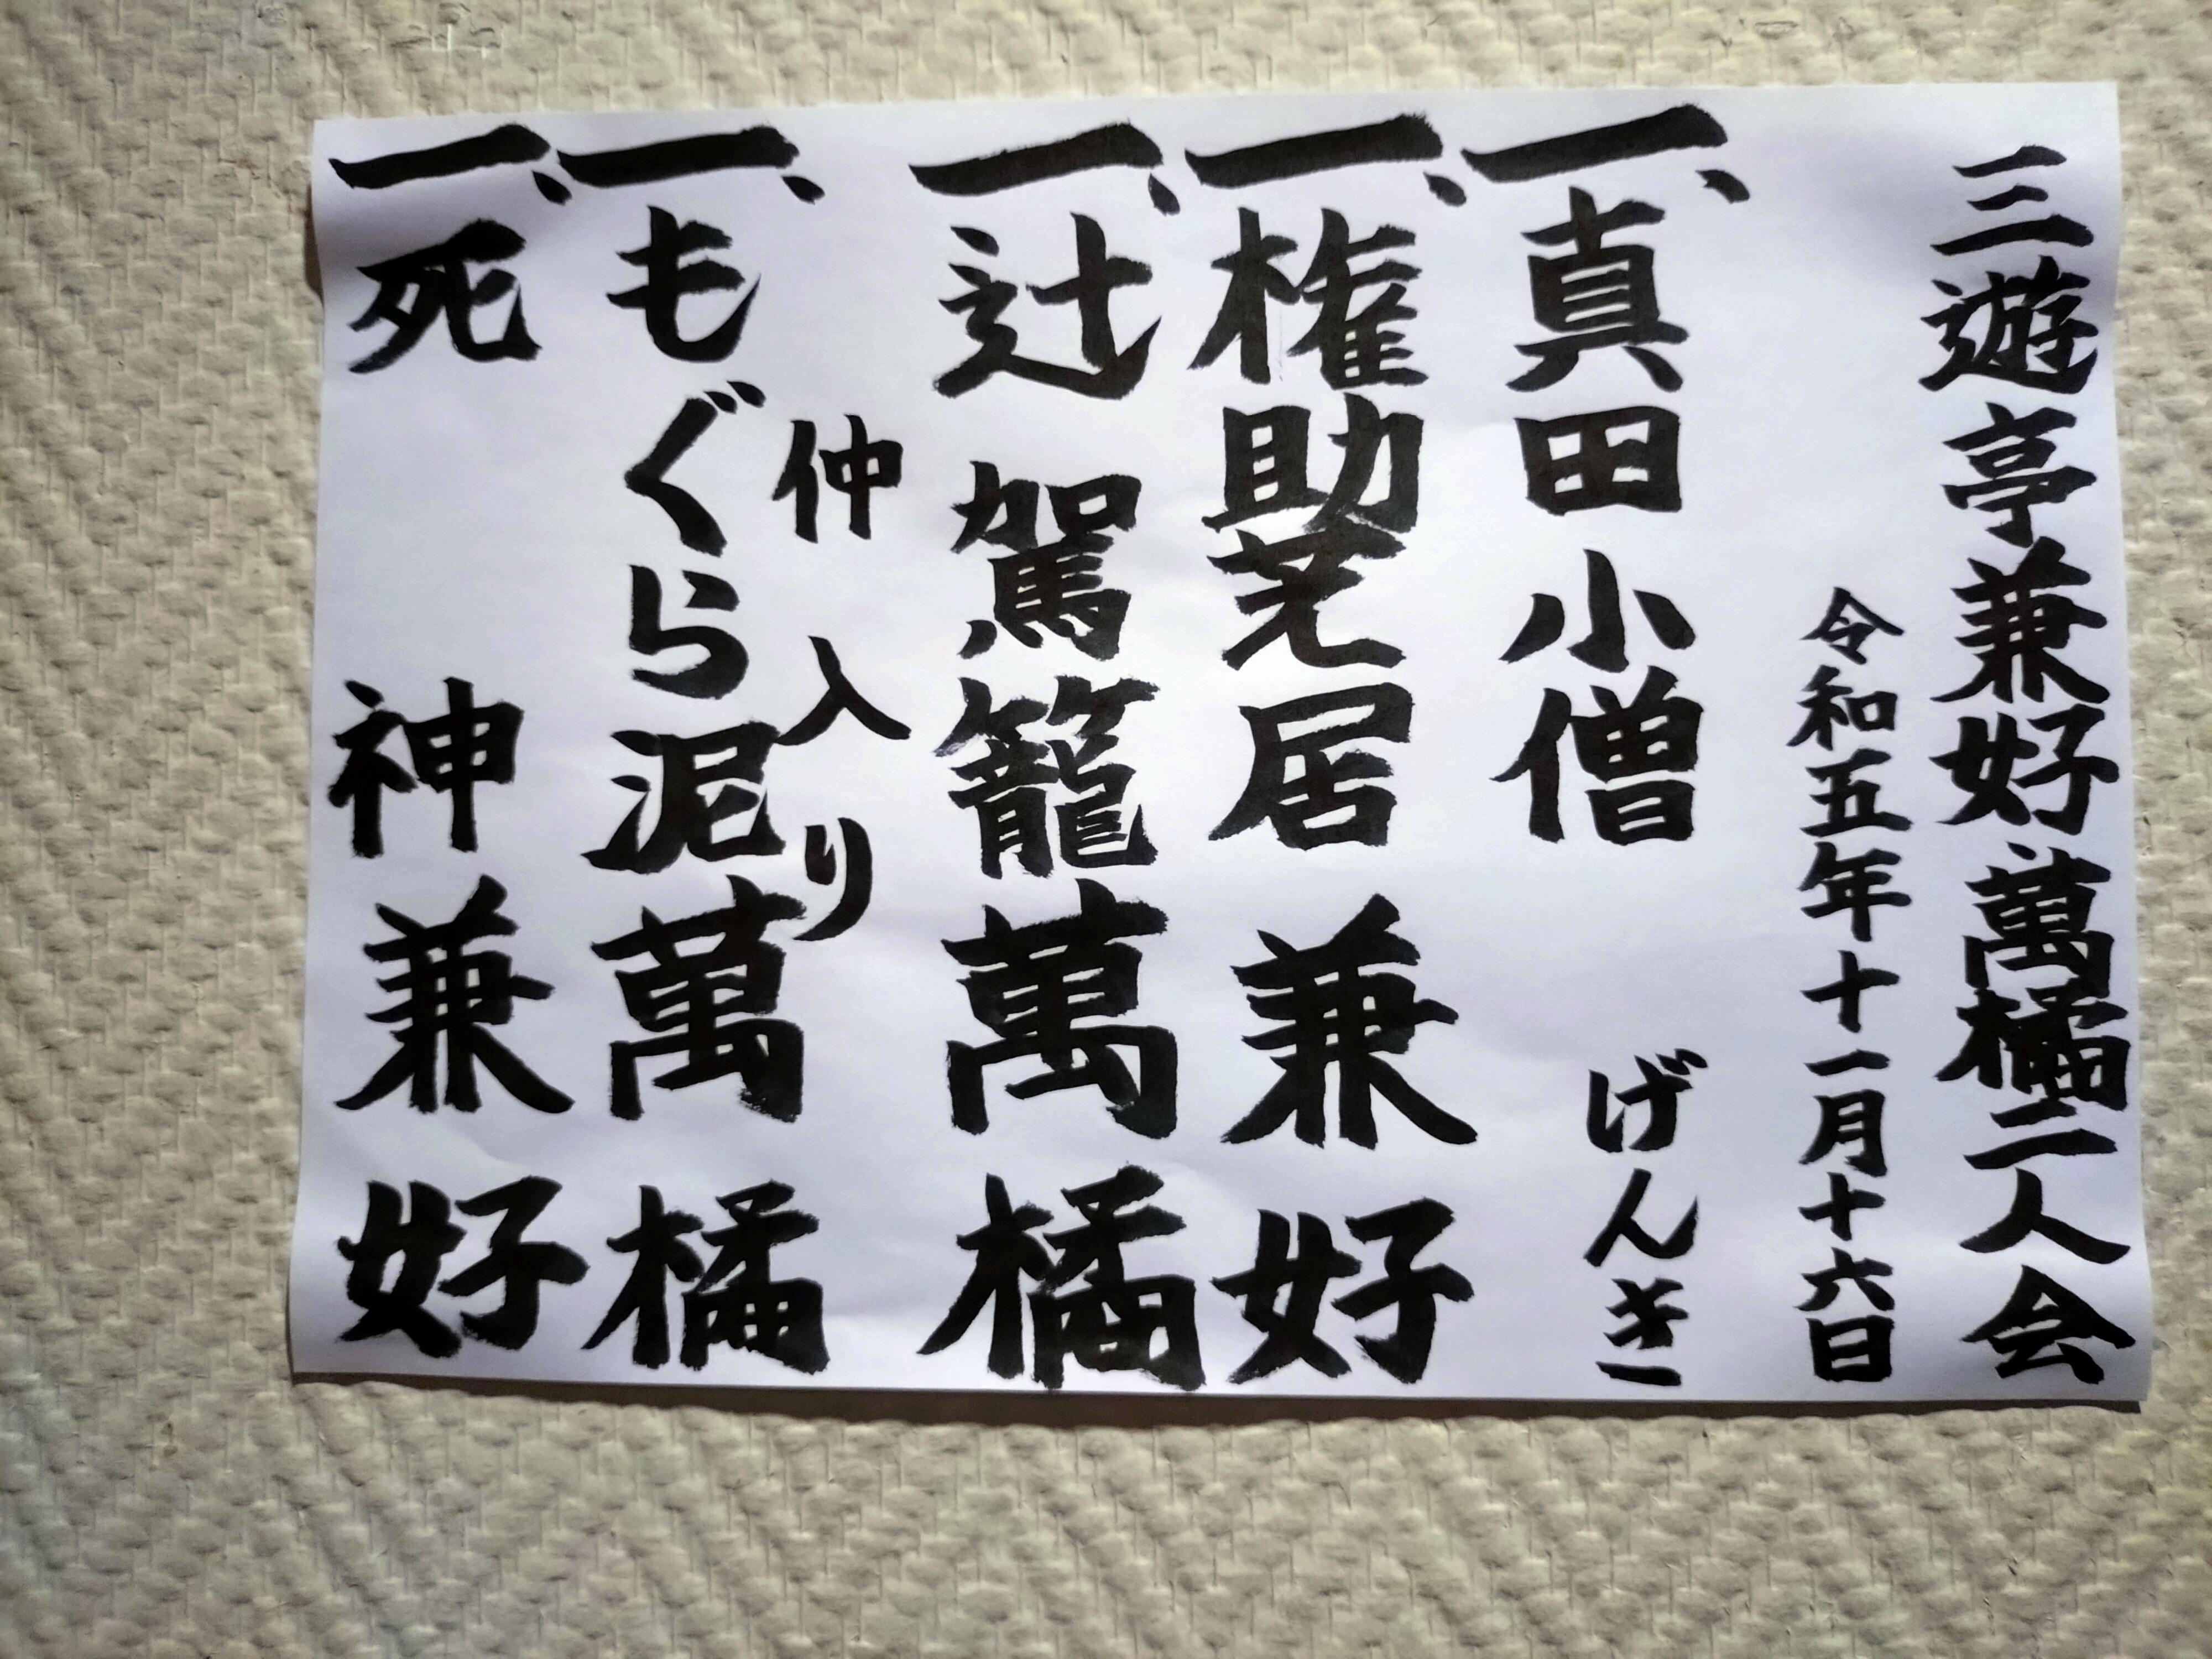 三遊亭兼好萬橘二人会
令和五年十一月十六日
一、真田小僧 げんき
一、権助芝居 兼好
一、辻駕籠 萬橘
仲入り
一、もぐら泥 萬橘
一、死神 兼好